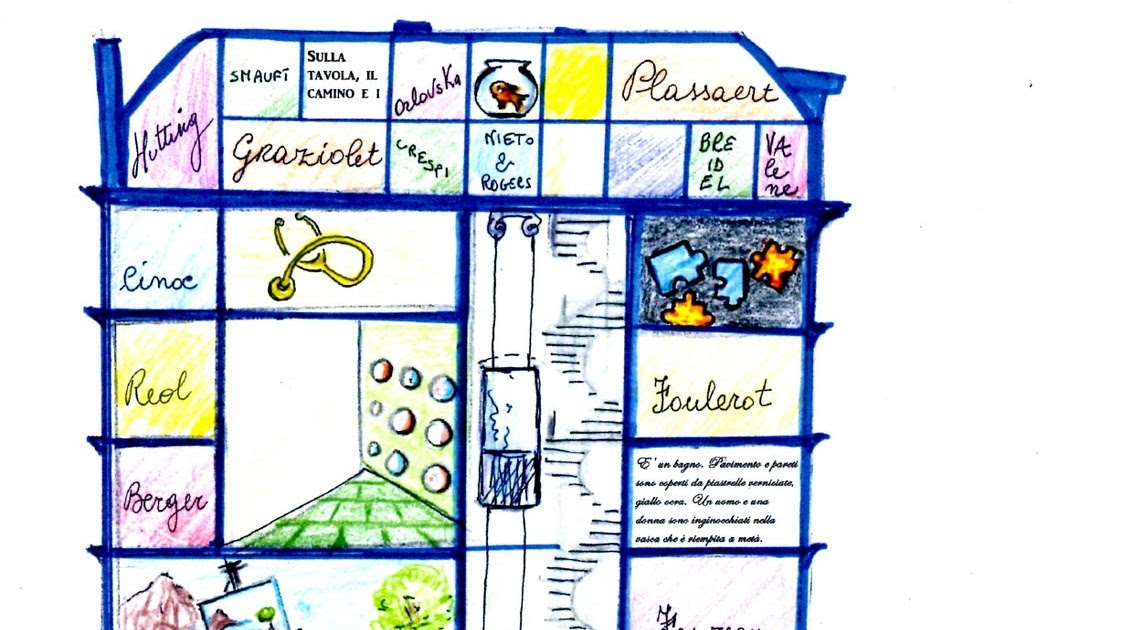 Hutting
SMAUFT
SULLA
TAVOLA, IL
CAMINO E I
OrlovsKa
Plassaert
Graziolet
CRESPI
NIETO
&
ROGERS
BRE
ID
EL
VA
le
ne
Cinoc
Reol
Foulerot
Berger
E' un bagno. Pavimento e pareti
sono coperti da piastrelle verniciate,
giallo ocra. Un uomo e una
donna sono inginocchiati nella
vasca che è riempita a metà.